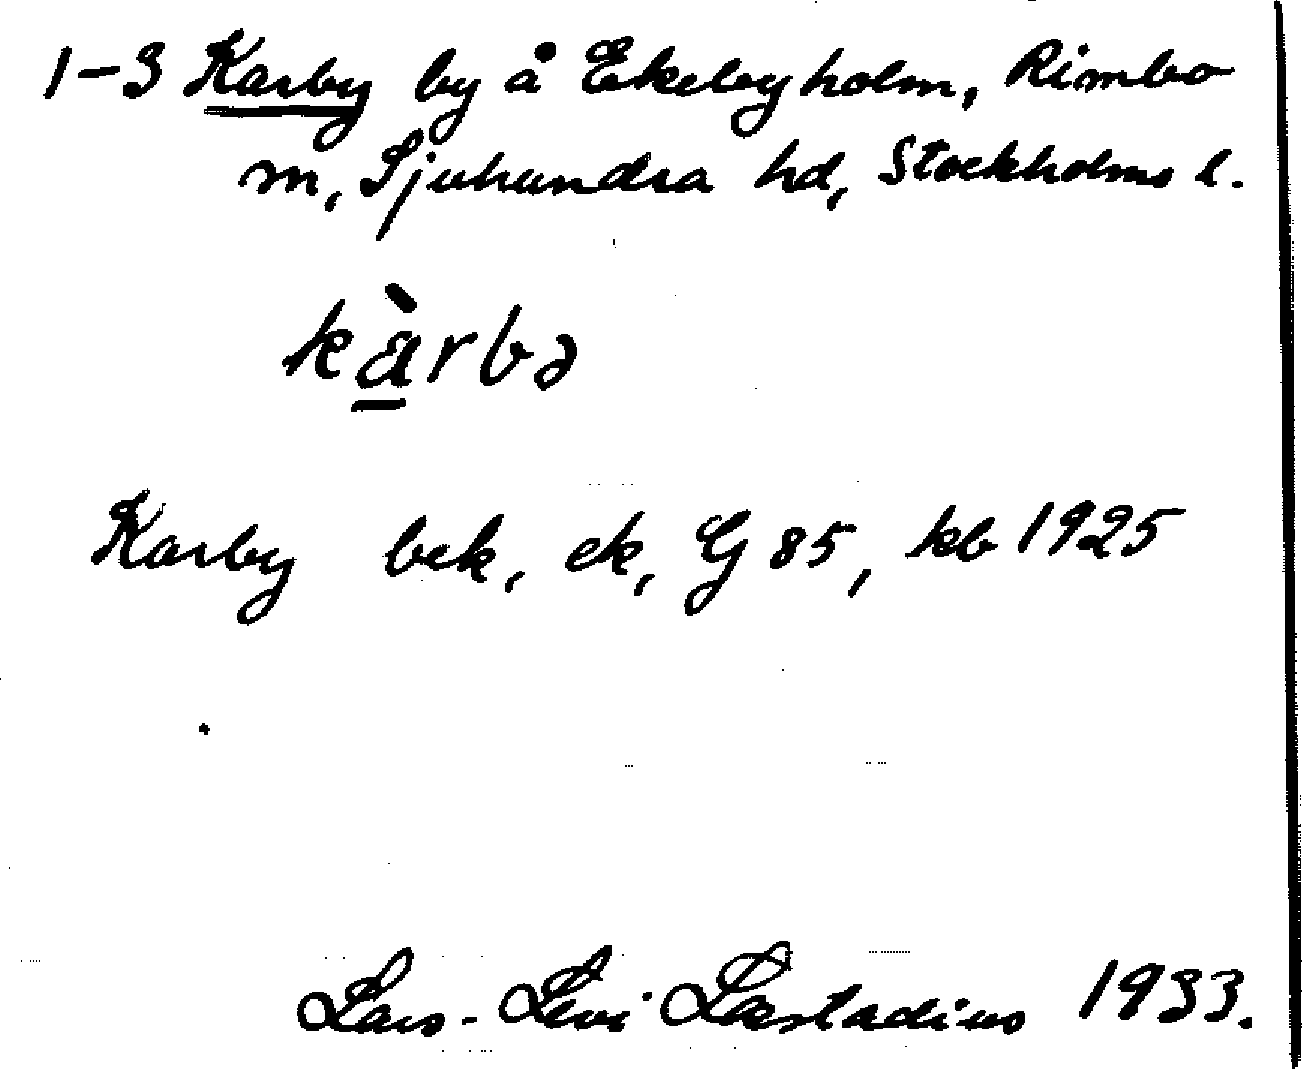 1-3 Karby by å Ekebyholm, Rimbo
m, Sjuhundra hd, Stockholms l.
kàrbə
Karby bek, ek, G 85, kb 1925
Lars-Levi Læstadius 1933.